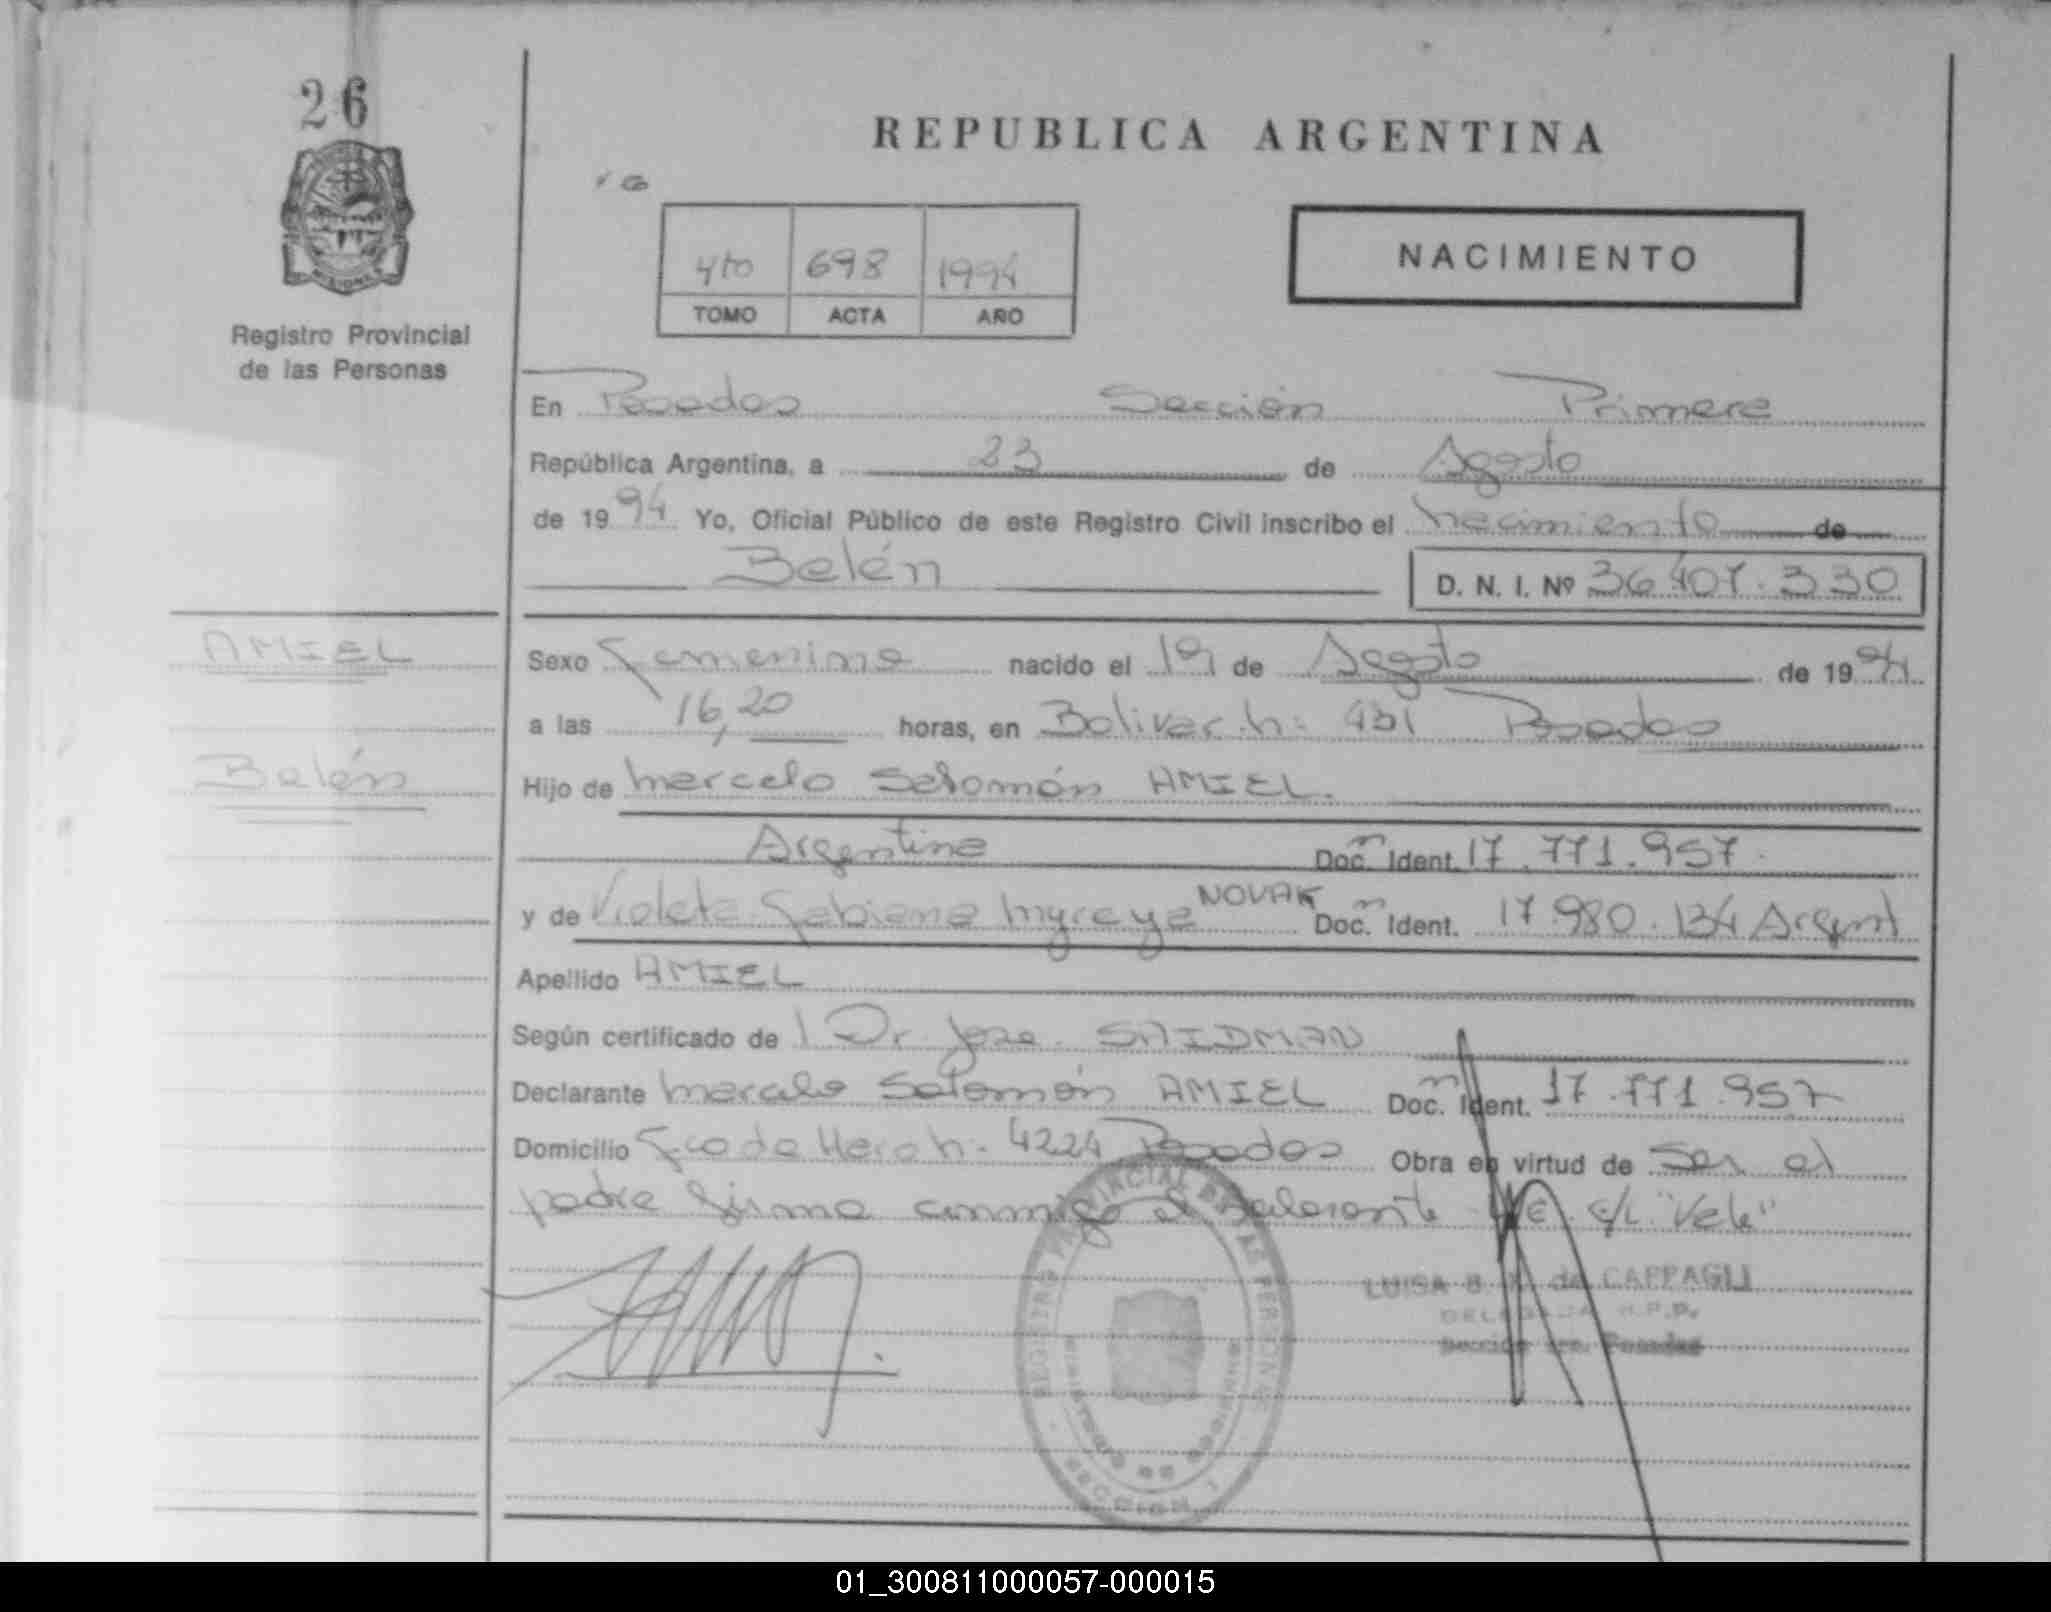 26
REPUBLICA ARGENTINA
NACIMIENTO
4to 698 1994
TOMO ACTA AÑO
Registro Provincial
de las Personas
En Posadas Sección Primera
República Argentina, a 23 de Agosto
de 1994 Yo, Oficial Público de este Registro Civil inscribo el nacimiento de
Belén D. N. I. Nº 36.407.330
AMIEL
Belén
Sexo Femenino nacido el 19 de Agosto de 1994
a las 16,20 horas, en Bolivar n: 431 Posadas
Hijo de Marcelo Salomón AMIEL.
Argentino Doc. Ident. 17.771.957.
y de Violeta Fabiana Myreya NOVAK Doc. Ident. 17.980.134 Argent
Apellido AMIEL
Según certificado de l Dr. Jose SAIDMAN
Declarante Marcelo Salomón AMIEL Doc. Ident. 17.771.957
Domicilio Fco de Haro n: 4224 Posadas Obra en virtud de Ser el
padre firma conmigo el declarante
LUISA B. de CAPPAGLI
DELEGADA R.P.P.
Sección 1ra. Posadas
REGISTRO PROVINCIAL DE LAS PERSONAS
MINISTERIO DE GOBIERNO
SECCION 1
01_300811000057-000015